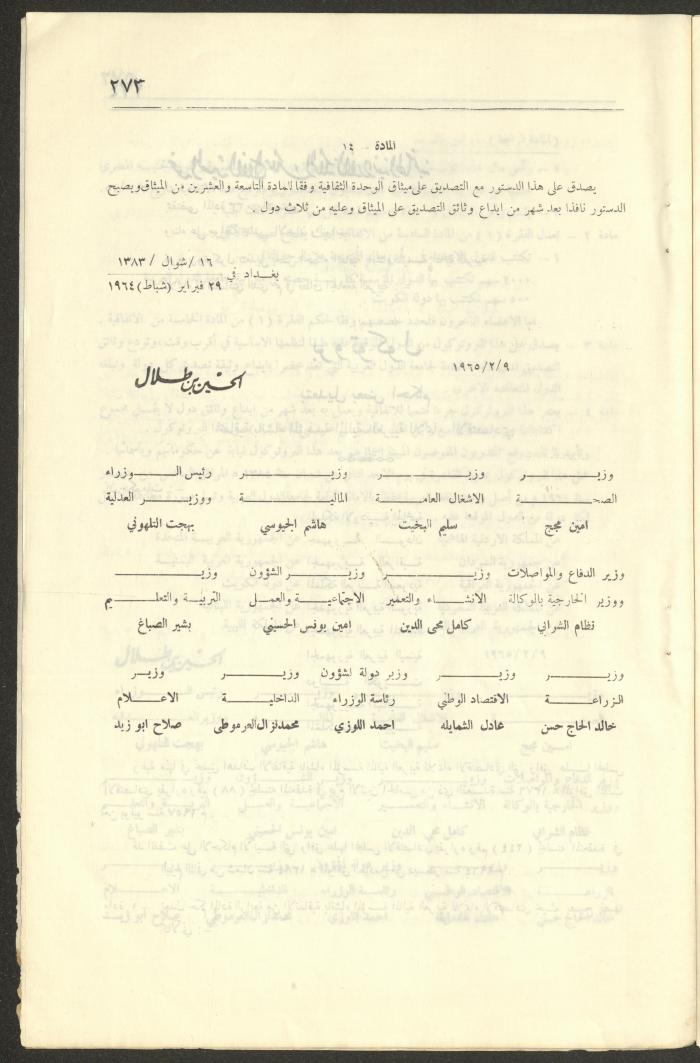 ٢٧٣
المادة - ١٤
يصدق على هذا الدستور مع التصديق على ميثاق الوحدة الثقافية وفقا للمادة التاسعة والعشرين من الميثاق ويصبح
الدستور نافذا بعد شهر من ايداع وثائق التصديق على الميثاق وعليه من ثلاث دول .
بغداد في ١٦ / شوال / ١٣٨٣
٢٩ فبراير (شباط) ١٩٦٤
١٩٦٥/٢/٩
الحسين بن طلال
وزير وزير وزير رئيس الوزراء
الصحة الاشغال العامة المالية ووزير العدلية
امين مجج سليم البخيت هاشم الجيوسي بهجت التلهوني
وزير الدفاع والمواصلات وزير وزير الشؤون وزير
ووزير الخارجية بالوكالة الانشاء والتعمير الاجتماعية والعمل التربية والتعليم
نظام الشرابي كامل محي الدين امين يونس الحسيني بشير الصباغ
وزير وزير وزير دولة لشؤون وزير وزير
الزراعة الاقتصاد الوطني رئاسة الوزراء الداخلية الاعلام
خالد الحاج حسن عادل الشمايله احمد اللوزي محمد نزال العرموطي صلاح ابو زيد